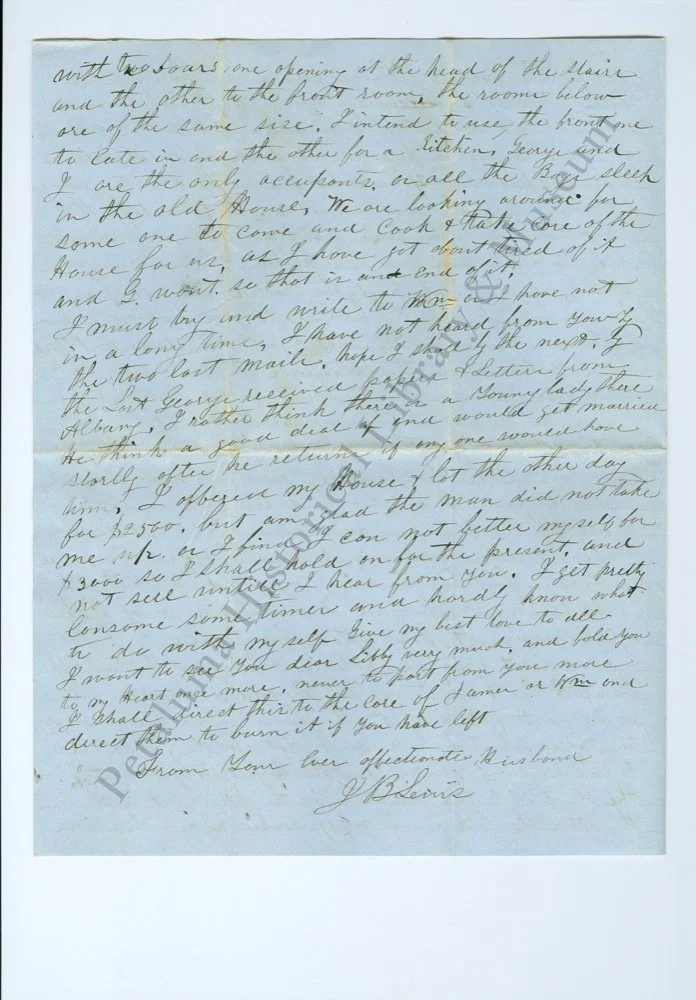 with two Doars one opening at the head of the stairs
and the other to the front room, the rooms below
are of the same size. I intend to use the front one
to eate in and the other for a Kitchen, George and
I are the only occupants. as all the Boys sleep
in the old House, We are looking around for
some one to come and Cook & take care of the
House for us, as I have got about tired of it
and G. wont. so that is an end of it.
I must try and write to Wm as I have not
in a long time, I have not heard from You by
the two last mails. hope I shall by the next. By
the Last George received papers & Letters from
Albany, I rather think there is a Young lady there
He thinks a good deal of and would get married
shortly after he returns if any one would have
him, I offered my House & lot the other day
for $2500. but am glad the man did not take
me up. as I find I can not better myself for
$3000 so I shall hold on for the present, and
not sell untill I hear from You. I get pretty
lonsome some times and hardly know what
to do with myself Give my best love to all.
I want to see You dear Libby very much. and fold You
to my Heart once more, never to part from you more
I shall direct this to the care of James or Wm and
direct them to burn it if You have left
From Your Ever affectionate Husband
J B Lewis
Petaluma Historical Library & Museum